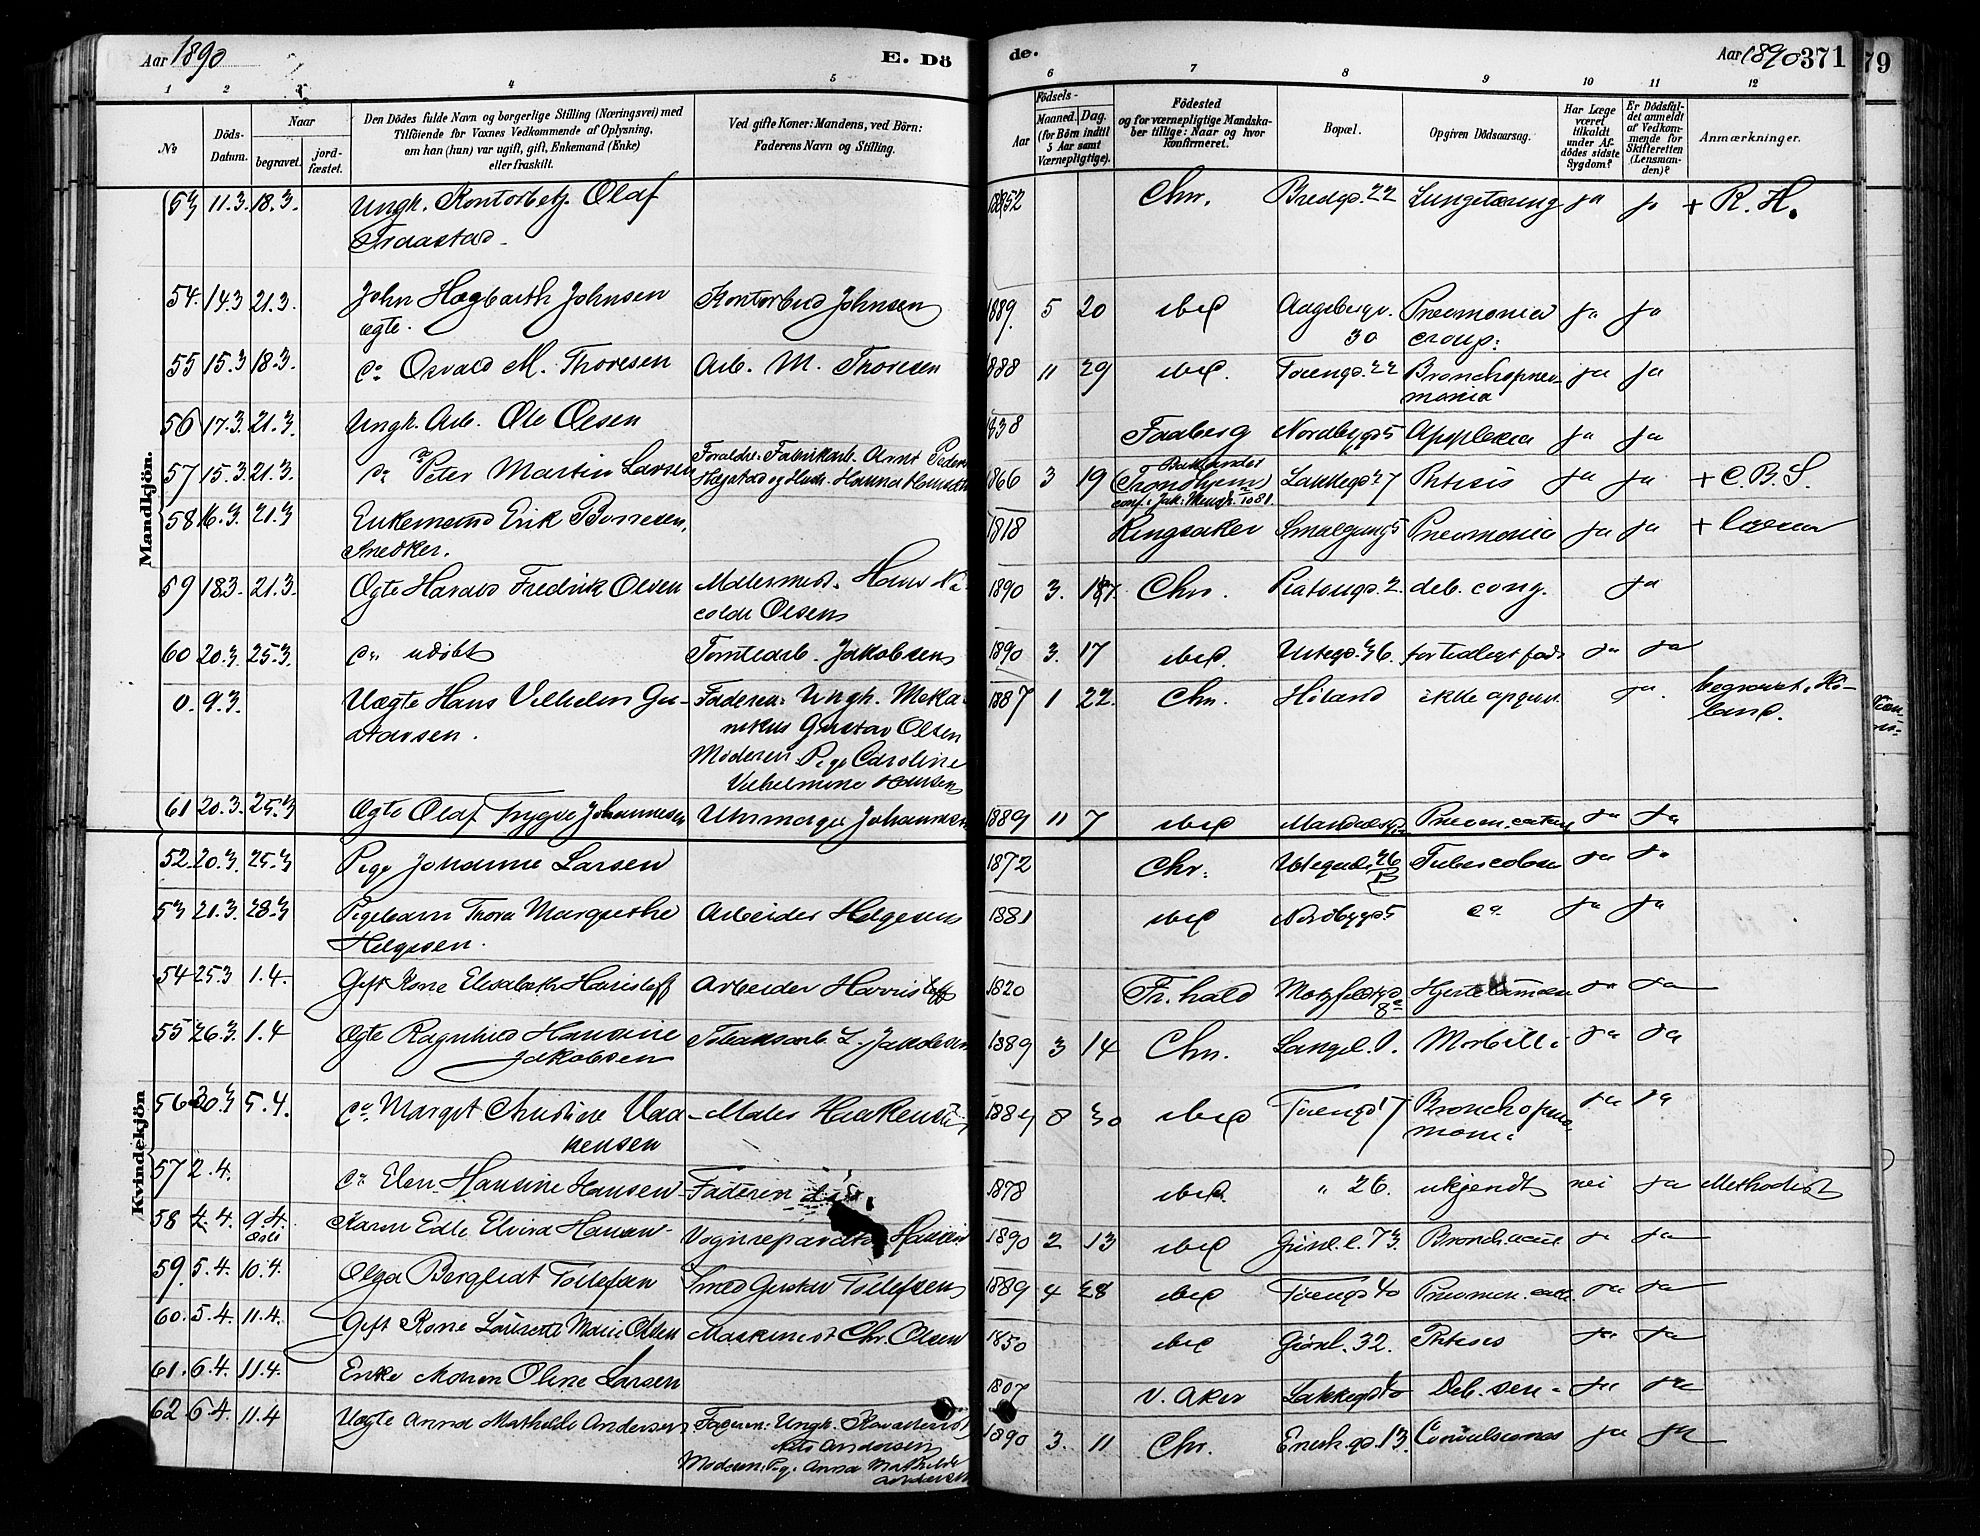 Aar 1890
E. Dö
de.
Aar 1890 371
79
1 2 3 4 5 6 7 8 9 10 11 12
№
Döds-Datum.
Naar
begravet.
jord-fæstet.
Den Dödes fulde Navn og borgerlige Stilling (Næringsvei) med
Tilföiende for Voxnes Vedkommende af Oplysning,
om han (hun) var ugift, gift, Enkemand (Enke)
eller fraskilt.
Ved gifte Koner: Mandens, ved Börn:
Faderens Navn og Stilling.
Födsels-
Aar
Maaned. Dag.
(for Börn indtil
5 Aar samt
Værnepligtige).
Födested
og for værnepligtige Mandska-
ber tillige: Naar og hvor
konfirmeret.
Bopæl.
Opgiven Dödsaarsag.
Har Læge
været
tilkaldt
under Af-
dödes sidste
Sygdom?
Er Dödsfal-
det anmeldt
af Vedkom-
mende for
Skifteretten
(Lensman-
den)?
Anmærkninger.
Mandkjön.
53 11.3. 18.3. Ungk. Kontorbetj. Olaf 1852 Chr. Bredgd. 22 Lungetæring ja ja + R. H.
54. 14.3 21.3. John Hagbarth Johnsen Kontorbud Johnsen 1889. 5 20 ibid Aagebergv. Pneumonia ja ja
ægte. 30 croup:
55 15.3 18.3. do Osvald M. Thoresen Arb. M. Thoresen 1888 11 29 ibid. Tøiengd. 22 Bronchopneu- ja ja
monia
56 17.3. 21.3. Ungk. Arb. Ole Olsen 1838 Faaberg Nordbygd 5 Apoplexia ja ja
57 15.3. 21.3. do Peter Martin Larsen Forældre: Fabrikarb. Arnt 1866 3 19 Baklandet Lakkegd. 27 Phtisis ja ja + C. B. S.
Trondhjem
58 16.3. 21.3 Enkemand Erik Borresen, 1818 Ringsaker Smalgang 5 Pneumonia ja ja +
Snedker.
59 18.3. 21.3. Ægte Harald Fredrik Olsen Malermest. Hans Ni- 1890 3. Chr. Platougd. 2. deb. cong. ja
colai Olsen
60 20.3. 25.3. do udøbt Tomtearb. Jakobsen 1890 3. 17 ibid. Urtegd. 36. for tidligt født ja ja
0. 9.3. Uægte Hans Vilhelm Gu- Faderen: Ungk. Meka- 1887 1 22. Chr. Høland ikke opgivet ja. begravet i Hø-
stavsen. nikus Gustav Olsen land.
Moderen Pige Caroline
Vilhelmine Hansen
61 20.3. 25.3 Ægte Olaf Trygve Johannesen Uhrmager Johannesen 1889 11 7 ibid Pneum. catarr ja ja
Kvindekjön
52. 20.3. 25.3 Pige Johanne Larsen 1872 Chr. Urtegad. Tuberculose ja ja
53 21.3. 28.3 Pigebarn Thora Margrethe Arbeider Helgesen 1881 ibid Nordbygd 5 do ja ja
Helgesen.
54 25.3 1.4. Gift Kone Elisabeth Harisleff Arbeider Harrisleff 1820 Fr.hald Motzfeldtgd Hjertelammelse ja ja
55 26.3. 1.4 Ægte Ragnhild Hansine Tobaksarb. L. Jakobsen 1889 3 14 Chr. Langel. 1. Morbilli ja ja
Jakobsen
56 20.3 5.4. do Margot Christine Haa- Maler Haakensen 1889 8 30 ibid Tøiengd 17 Bronchopneu- ja ja
kensen monia
57 2.4. do Elen Hansine Hansen Faderen død. 1878 ibid. " 26. ukjendt nei ja Methodist
58 4.4. 9.4. Karen Edle Elvira Hansen Vognreparatør Hansen 1890 2 13 ibid Grønl. l. 73. Bronch. acut ja ja
Oslo
59 5.4. 10.4. Olga Bergliot Tollefsen Smed Gustav Tollefsen 1889 4 28 ibid Tøiengd 40 Pneumon. cat. ja ja
60. 5.4. 11.4. Gift Kone Laurette Marie Olsen Maskinist Chr. Olsen 1850 ibid Grønl. 32. Phtisis ja ja
61. 6.4. 11.4. Enke Maren Oline Larsen 1807 V. Aker Lakkegd 40 Deb. sen. ja ja
62 6.4. 11.4 Uægte Anna Mathilde Andersen Faderen: Ungk. 1890 3. 11 Chr. Enerh.gd. 13. Convulsiones ja ja
Andersen
Moderen: Pig. Anna Mathilde
Andersen